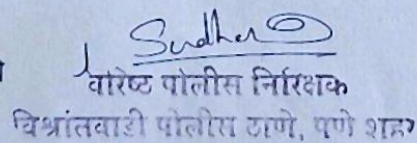 Sudhar
वरिष्ठ पोलीस निरिक्षक
विश्रांतवाडी पोलीस ठाणे, पुणे शहर